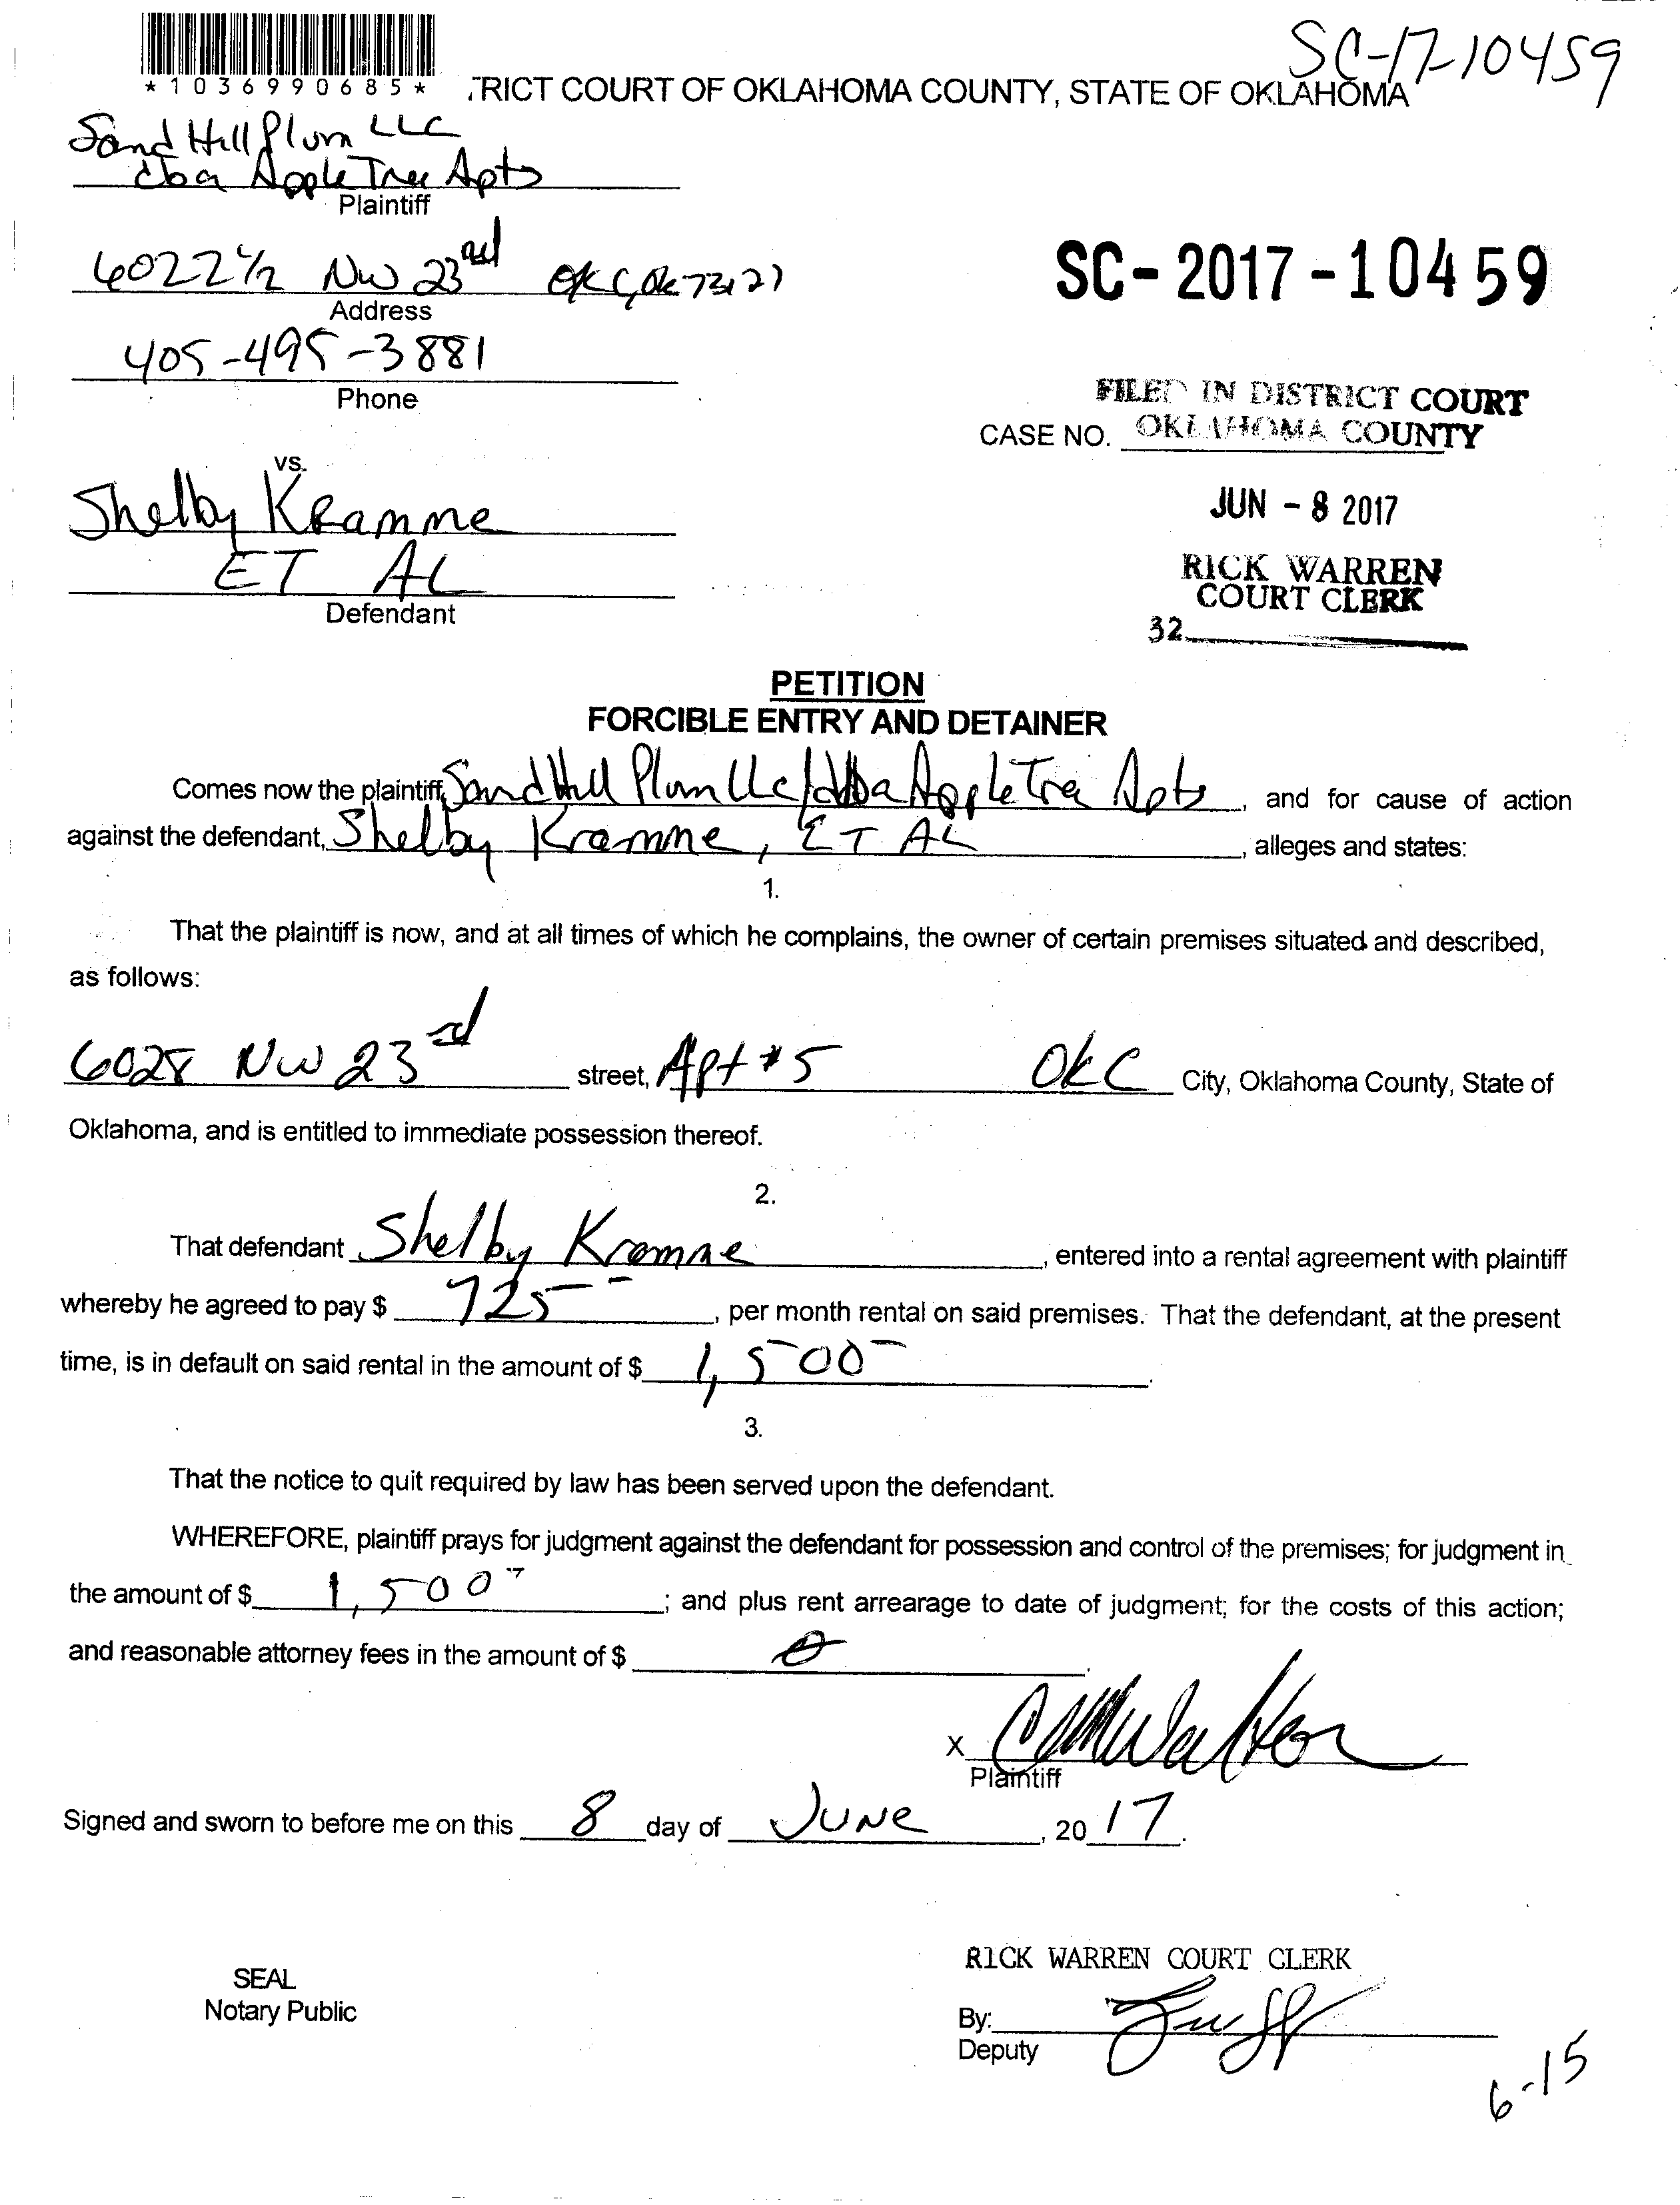 SC-17-10459
*10369990685*
TRICT COURT OF OKLAHOMA COUNTY, STATE OF OKLAHOMA
Sand Hill Plum LLC
dba Apple Tree Apts
Plaintiff
6022 1/2 NW 23rd OKC, Ok 73127
Address
SC-2017-10459
405-495-3881
Phone
FILED IN DISTRICT COURT
CASE NO. OKLAHOMA COUNTY
vs.
JUN - 8 2017
Shelby Kramme
ET AL
Defendant
RICK WARREN
COURT CLERK
32
PETITION
FORCIBLE ENTRY AND DETAINER
Comes now the plaintiff, Sand Hill Plum LLc/dba Apple Tree Apts, and for cause of action
against the defendant, Shelby Kramme, ET AL, alleges and states:
1.
That the plaintiff is now, and at all times of which he complains, the owner of certain premises situated and described,
as follows:
6028 NW 23rd street, Apt #5 OKC City, Oklahoma County, State of
Oklahoma, and is entitled to immediate possession thereof.
2.
That defendant Shelby Kramme, entered into a rental agreement with plaintiff
whereby he agreed to pay $ 725-, per month rental on said premises. That the defendant, at the present
time, is in default on said rental in the amount of $ 1,500-.
3.
That the notice to quit required by law has been served upon the defendant.
WHEREFORE, plaintiff prays for judgment against the defendant for possession and control of the premises; for judgment in
the amount of $ 1,500-; and plus rent arrearage to date of judgment; for the costs of this action;
and reasonable attorney fees in the amount of $ 0.
X
Plaintiff
Signed and sworn to before me on this 8 day of June, 20 17.
RICK WARREN COURT CLERK
SEAL
Notary Public
By:
Deputy
6-15